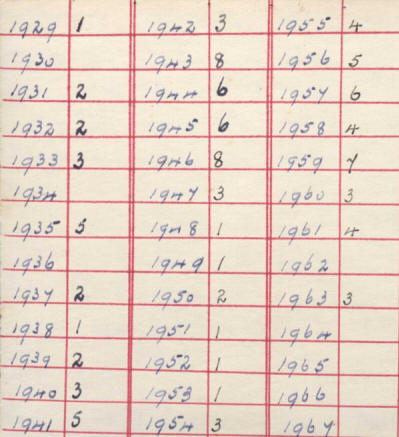 1929 1 1942 3 1955 4
1930 1943 8 1956 5
1931 2 1944 6 1957 6
1932 2 1945 6 1958 4
1933 3 1946 8 1959 7
1934 1947 3 1960 3
1935 5 1948 1 1961 4
1936 1949 1 1962
1937 2 1950 2 1963 3
1938 1 1951 1 1964
1939 2 1952 1 1965
1940 3 1953 1 1966
1941 5 1954 3 1967